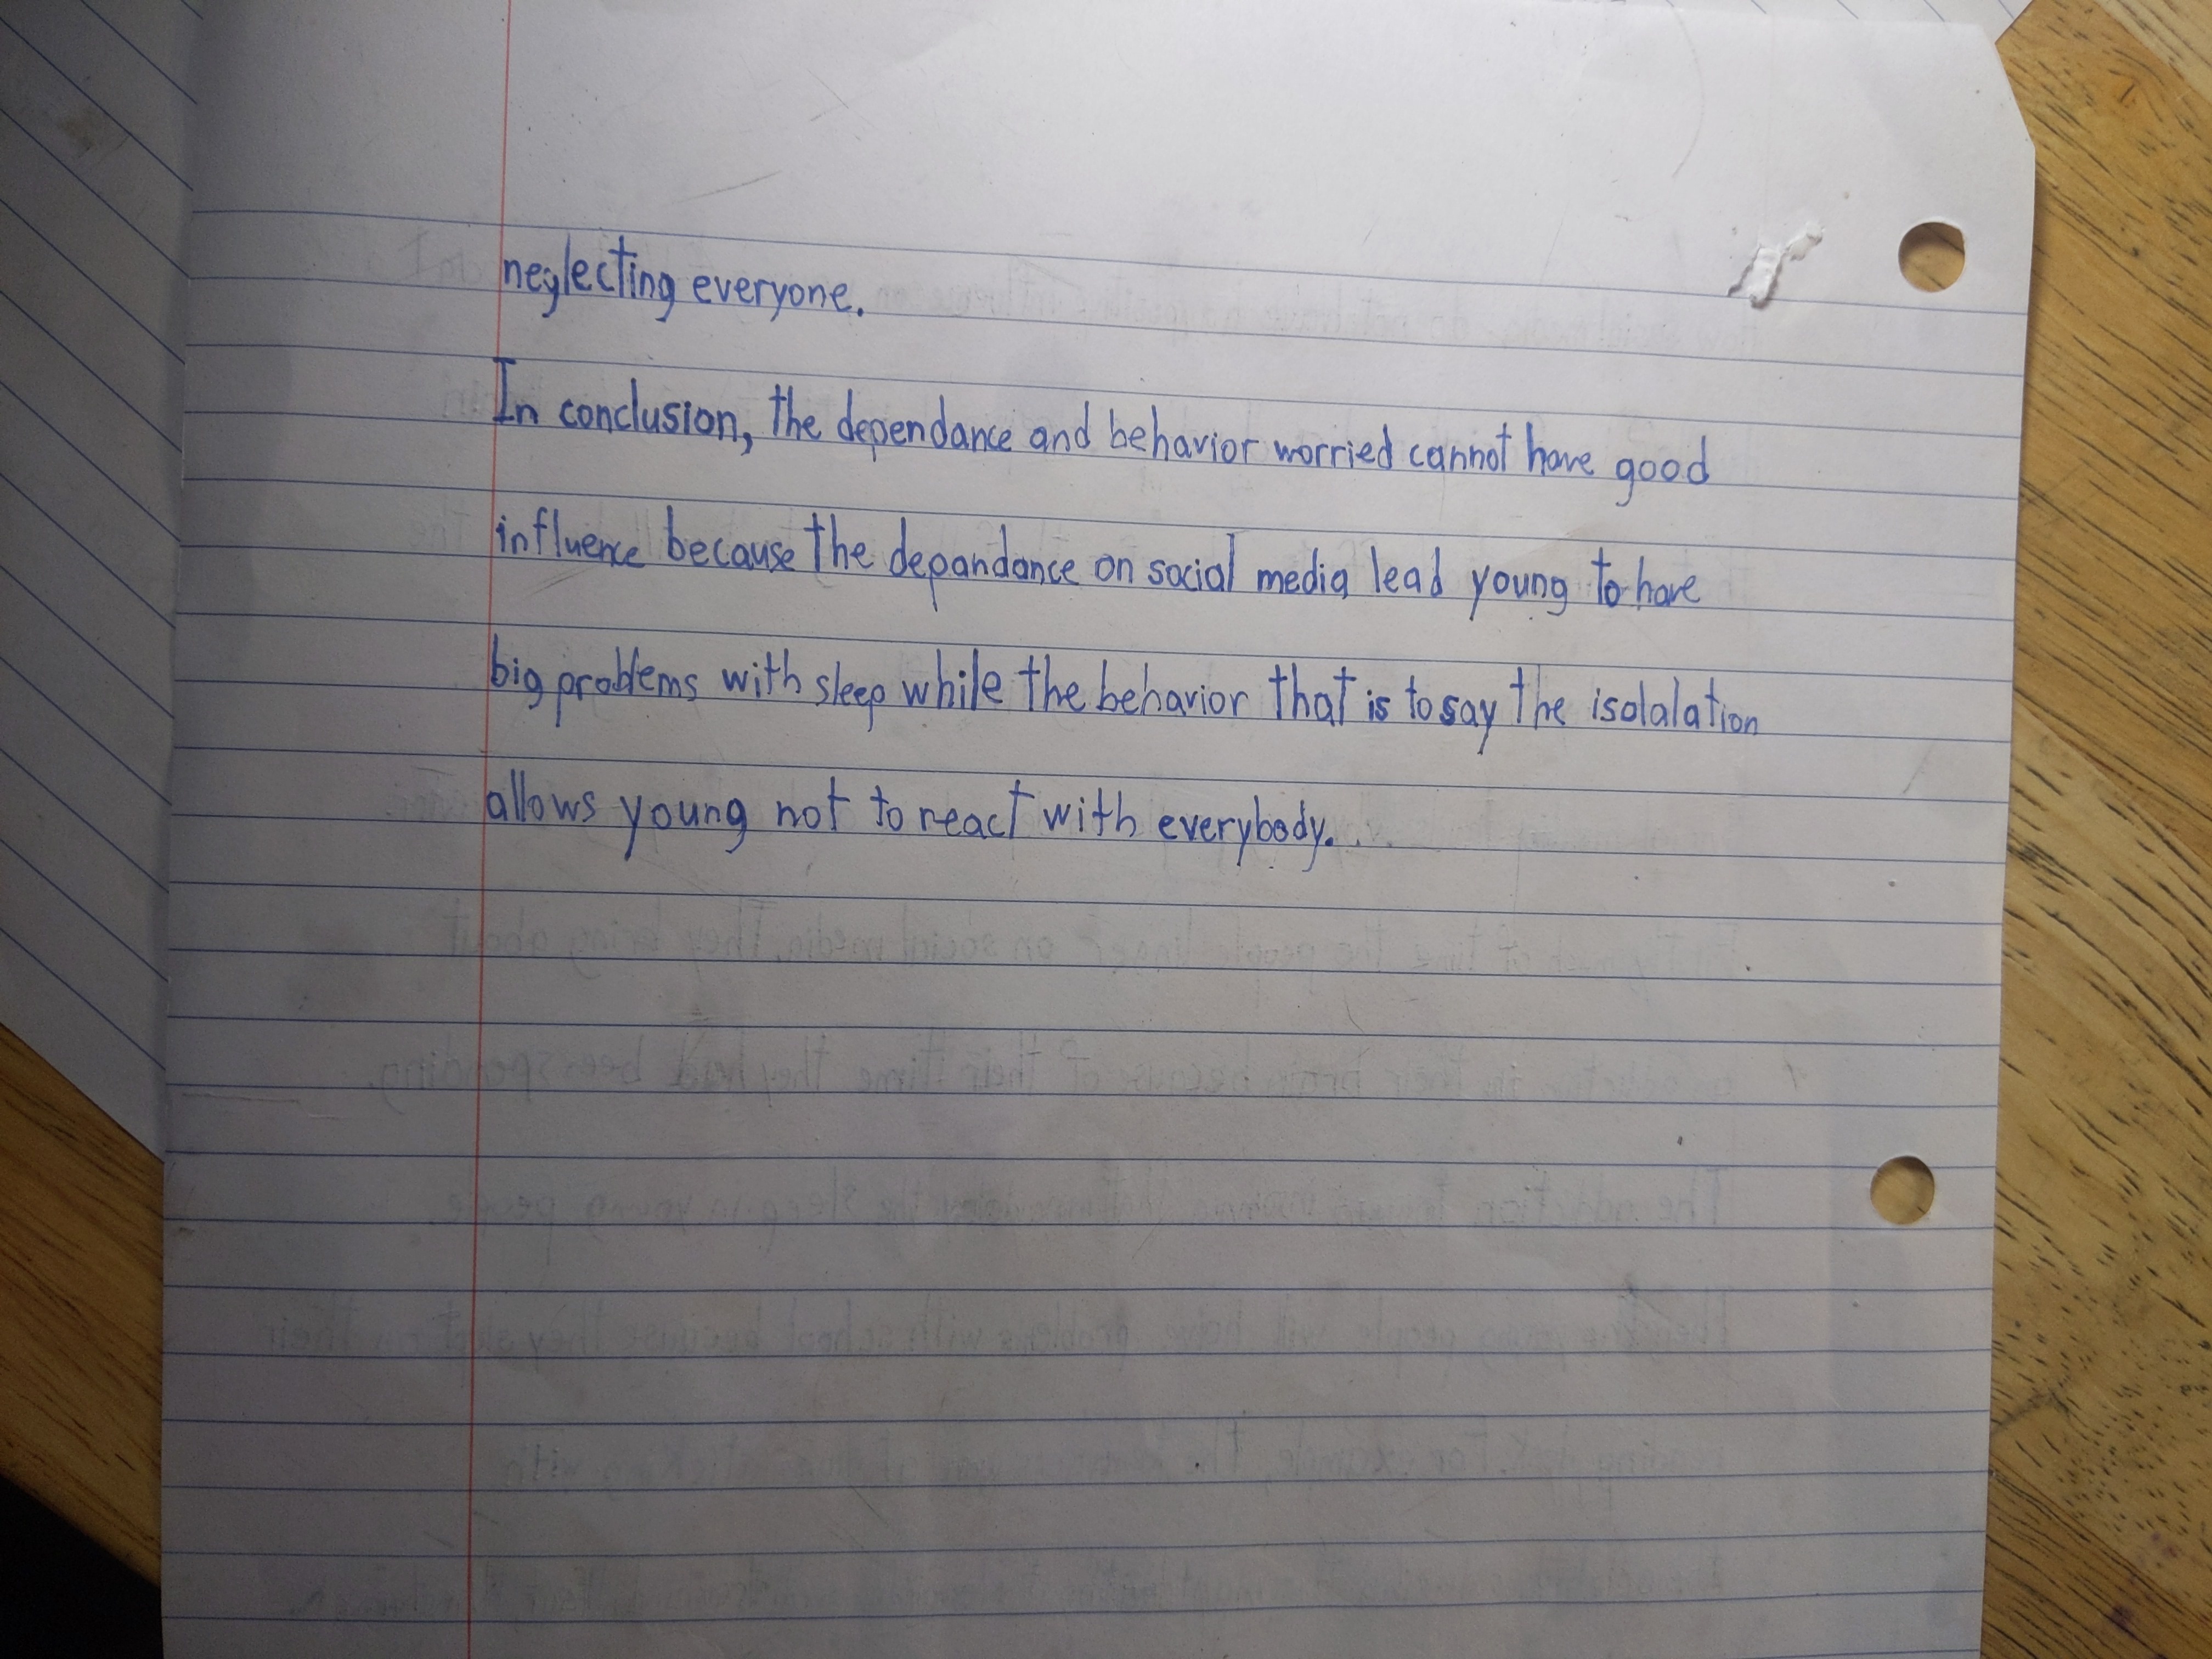 neglecting everyone.
In conclusion, the dependance and behavior worried cannot have good
influence because the depandance on social media lead young to have
big problems with sleep while the behavior that is to say the isolalation
allows young not to react with everybody.